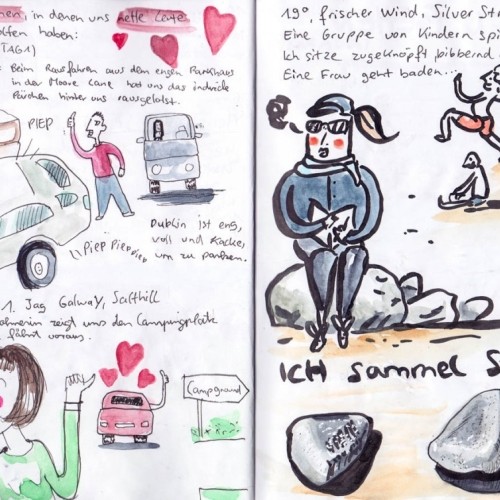 in denen uns nette Leute
olfen haben:
(TAG 1)
Beim Rausfahren aus dem engen Parkhaus
in der Moore Lane hat uns das indische
Pärchen hinter uns rausgelotst.
PIEP
PIEP PIEP PIEP
Dublin ist eng,
voll und Kacke,
um zu parken.
1. Tag Galway, Salthill
zeigt uns den Campingplatz
fährt voraus.
Campground
19°, frischer Wind, Silver Str
Eine Gruppe von Kindern spi
Ich sitze zugeknöpft, bibbernd
Eine Frau geht baden...
ICH sammel S